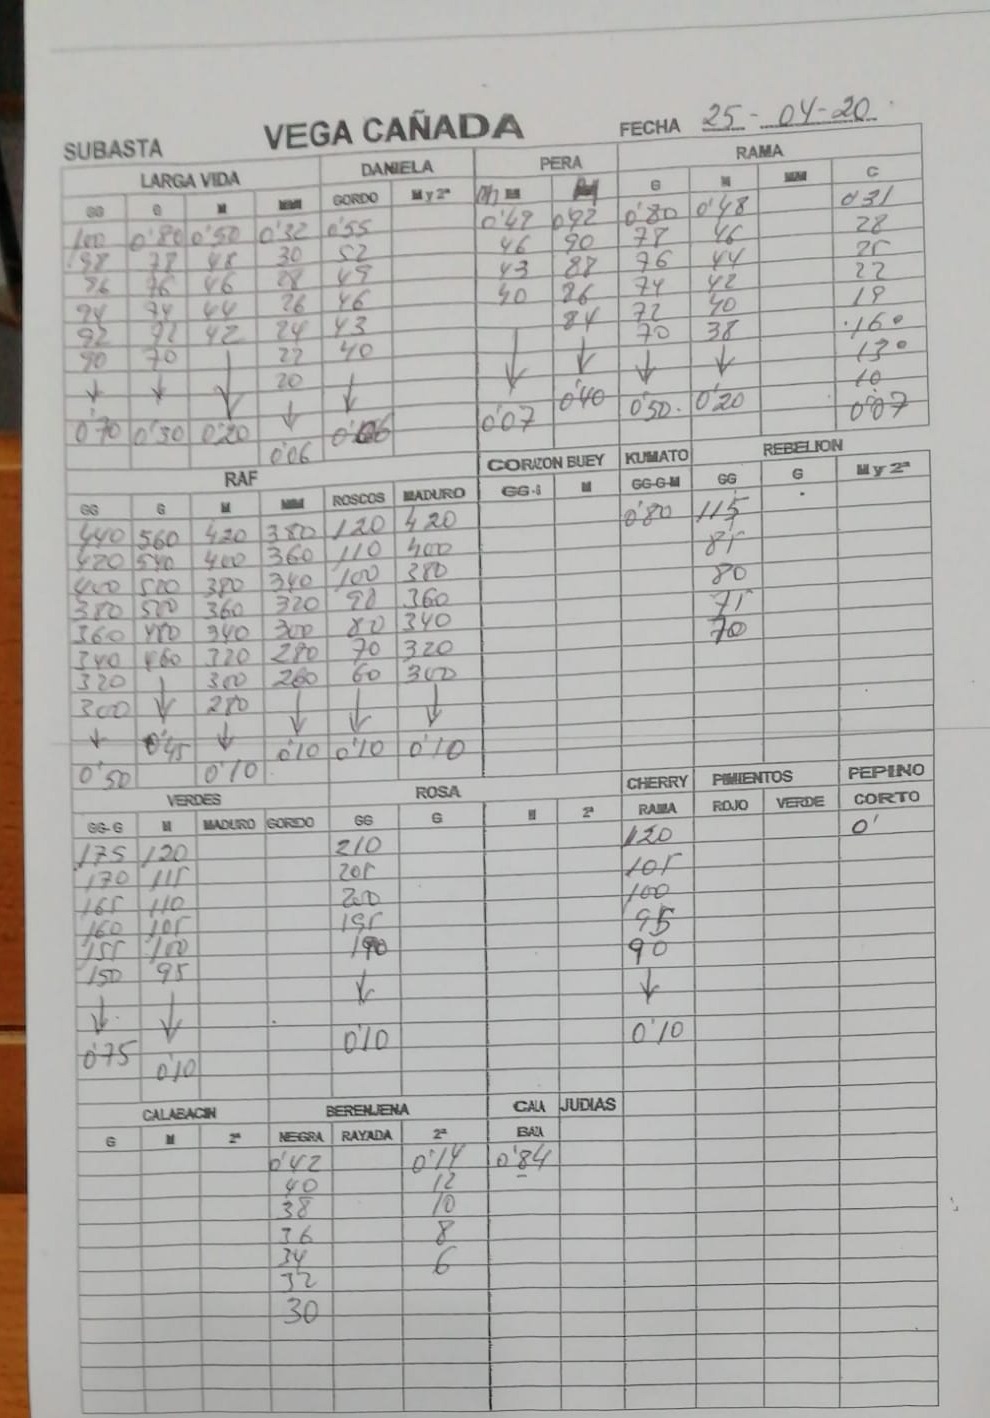 SUBASTA VEGA CAÑADA FECHA 25-04-20
LARGA VIDA DANIELA PERA RAMA
GG G M MM GORDO M y 2ª M G M MM C
100 0'80 0'50 0'32 0'55 0'49 0'92 0'80 0'48 0'31
98 78 48 30 52 46 90 78 46 28
96 76 46 28 49 43 88 76 44 25
94 74 44 26 46 40 74 42 22
92 42 24 43 84 72 40 19
90 70 ↓ 22 40 ↓ ↓ 70 38 16
↓ ↓ 20 ↓ ↓ ↓ 13
0'70 0'30 0'20 ↓ 0'07 0'40 0'50 0'20 10
0'06 0'07
RAF CORAZON BUEY KUMATO REBELION
GG G M MM ROSCOS MADURO M GG-G-M GG G M y 2ª
440 560 420 380 120 420 0'80 115
420 540 400 360 110 400 85
400 380 340 100 380 80
380 500 360 320 90 360 75
360 480 340 300 80 340 70
340 460 320 280 70 320
320 ↓ 300 260 60 300
300 280 ↓ ↓ ↓
↓ 0'45 ↓ 0'10 0'10 0'10
0'50 0'10
VERDES ROSA CHERRY PIMIENTOS PEPINO
GG-G M MADURO GORDO GG G M 2ª RAMA ROJO VERDE CORTO
175 120 210 120 0'
170 115 205 105
165 110 200 100
160 105 195 95
155 100 190 90
150 95 ↓ ↓
↓ ↓ 0'10 0'10
0'75 0'10
CALABACIN BERENJENA CALA JUDIAS
G M 2ª NEGRA RAYADA 2ª BAZA
0'42 0'14 0'84
40 12
38 10
36 8
34 6
32
30